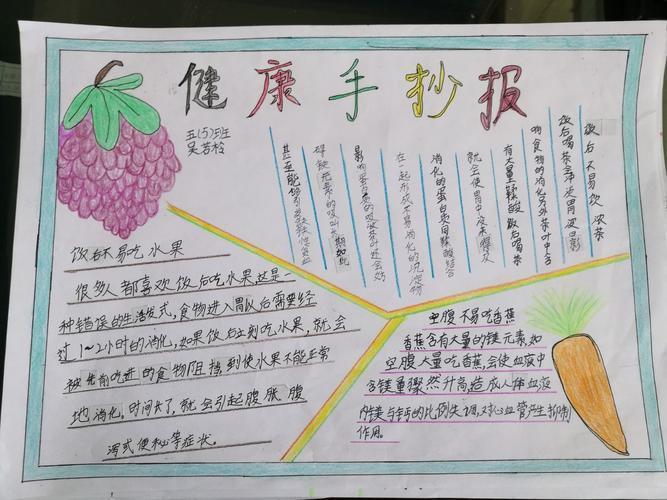 健康手抄报
五(5)班
吴若桧
饭后不易饮浓茶
饭后喝茶会冲淡胃液影
响食物的消化另外茶叶中含
有大量鞣酸饭后喝茶
就会使胃中没来得及
消化的蛋白质用鞣酸结合
在一起形成不易消化的沉淀物
影响蛋白质的吸收茶叶还会妨
碍铁元素的吸收长期如此
甚至能够引发缺铁性贫血
饭后不易吃水果
很多人都喜欢饭后吃水果,这是一
种错误的生活方式,食物进入胃以后需要经
过1~2小时的消化,如果饭后立刻吃水果,就会
被先前吃进的食物阻挡到使水果不能正常
地消化。时间长了,就会引起腹胀、腹
泻或便秘等症状。
空腹不易吃香蕉
香蕉含有大量的镁元素,如
空腹大量吃香蕉,会使血液中
含镁量骤然升高造成人体血液
内镁与钙的比例失调,对心血管产生抑制
作用。